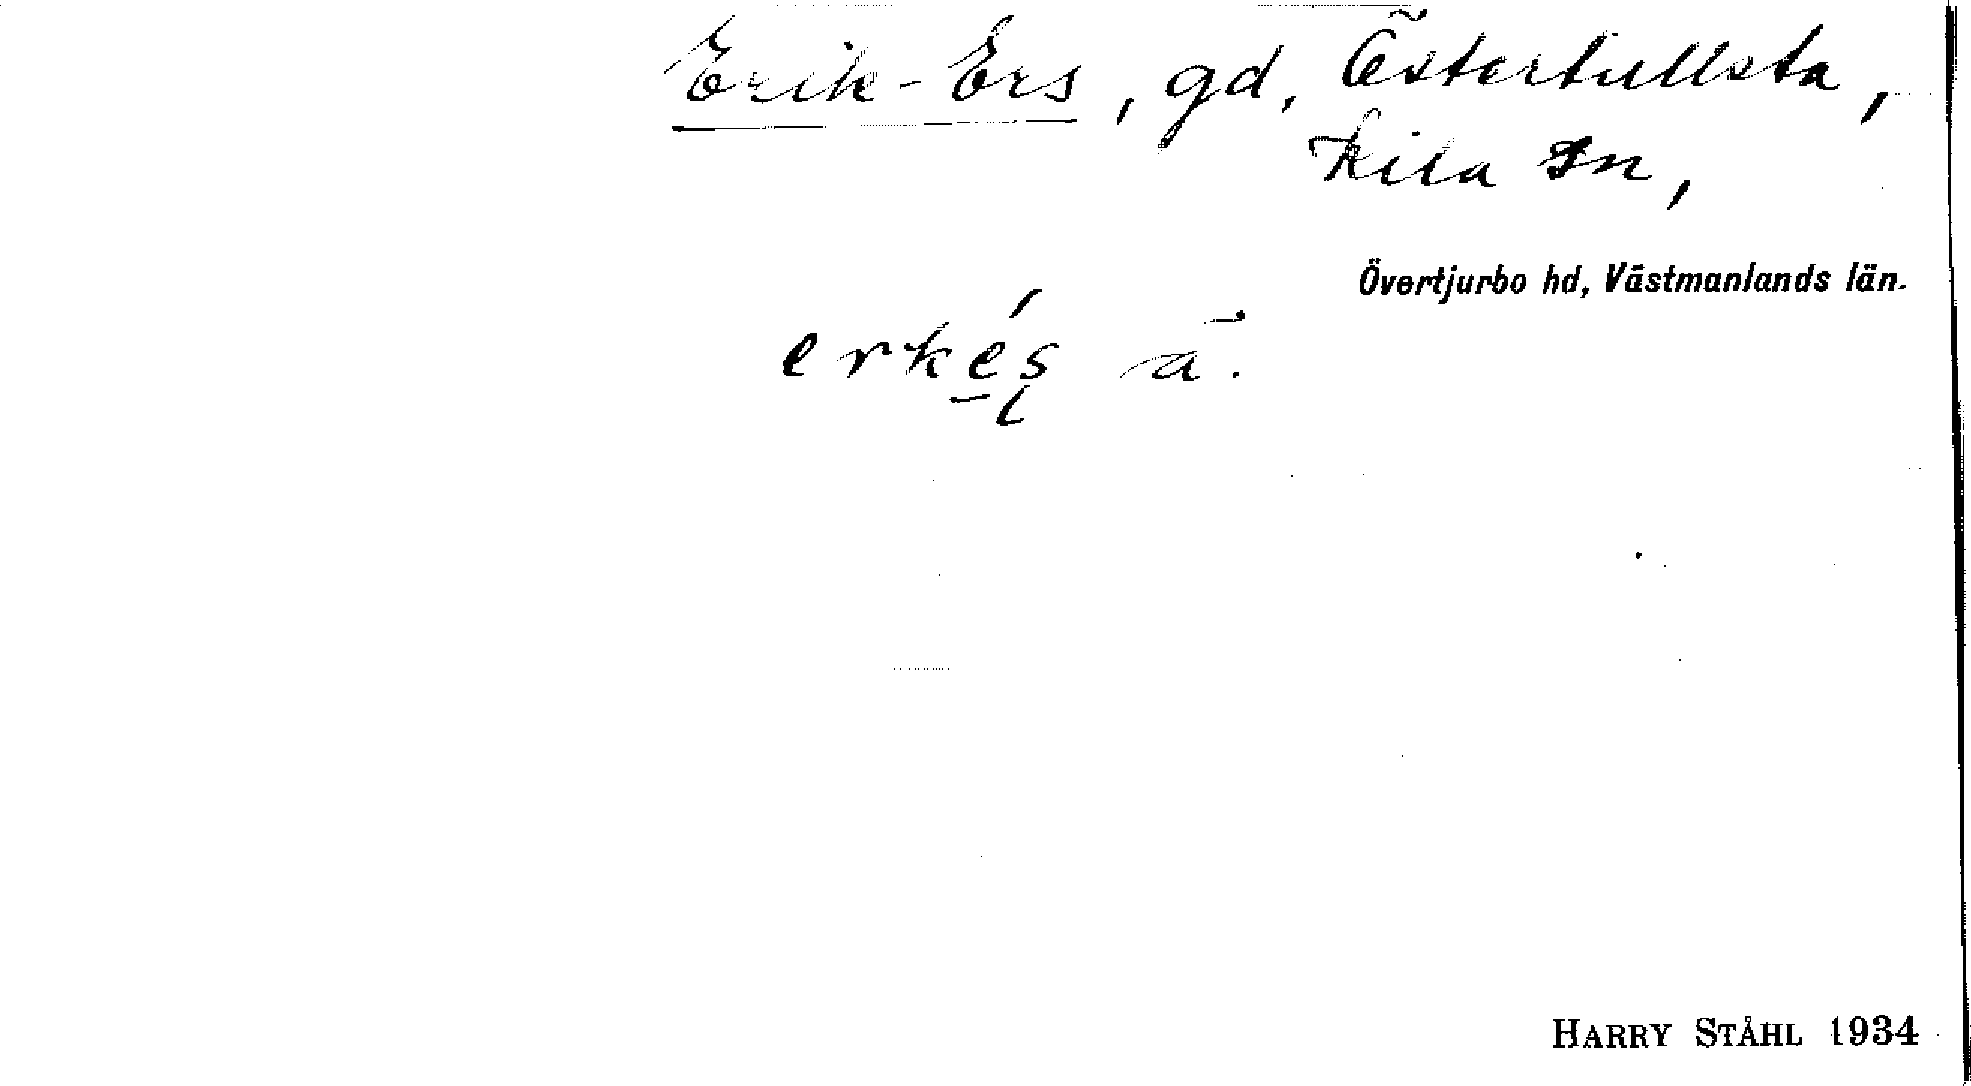 Erik-Ers, gd, Östertullsta,
Kila sn,
Övertjurbo hd, Västmanlands län.
erkés ā.
HARRY STÅHL 1934